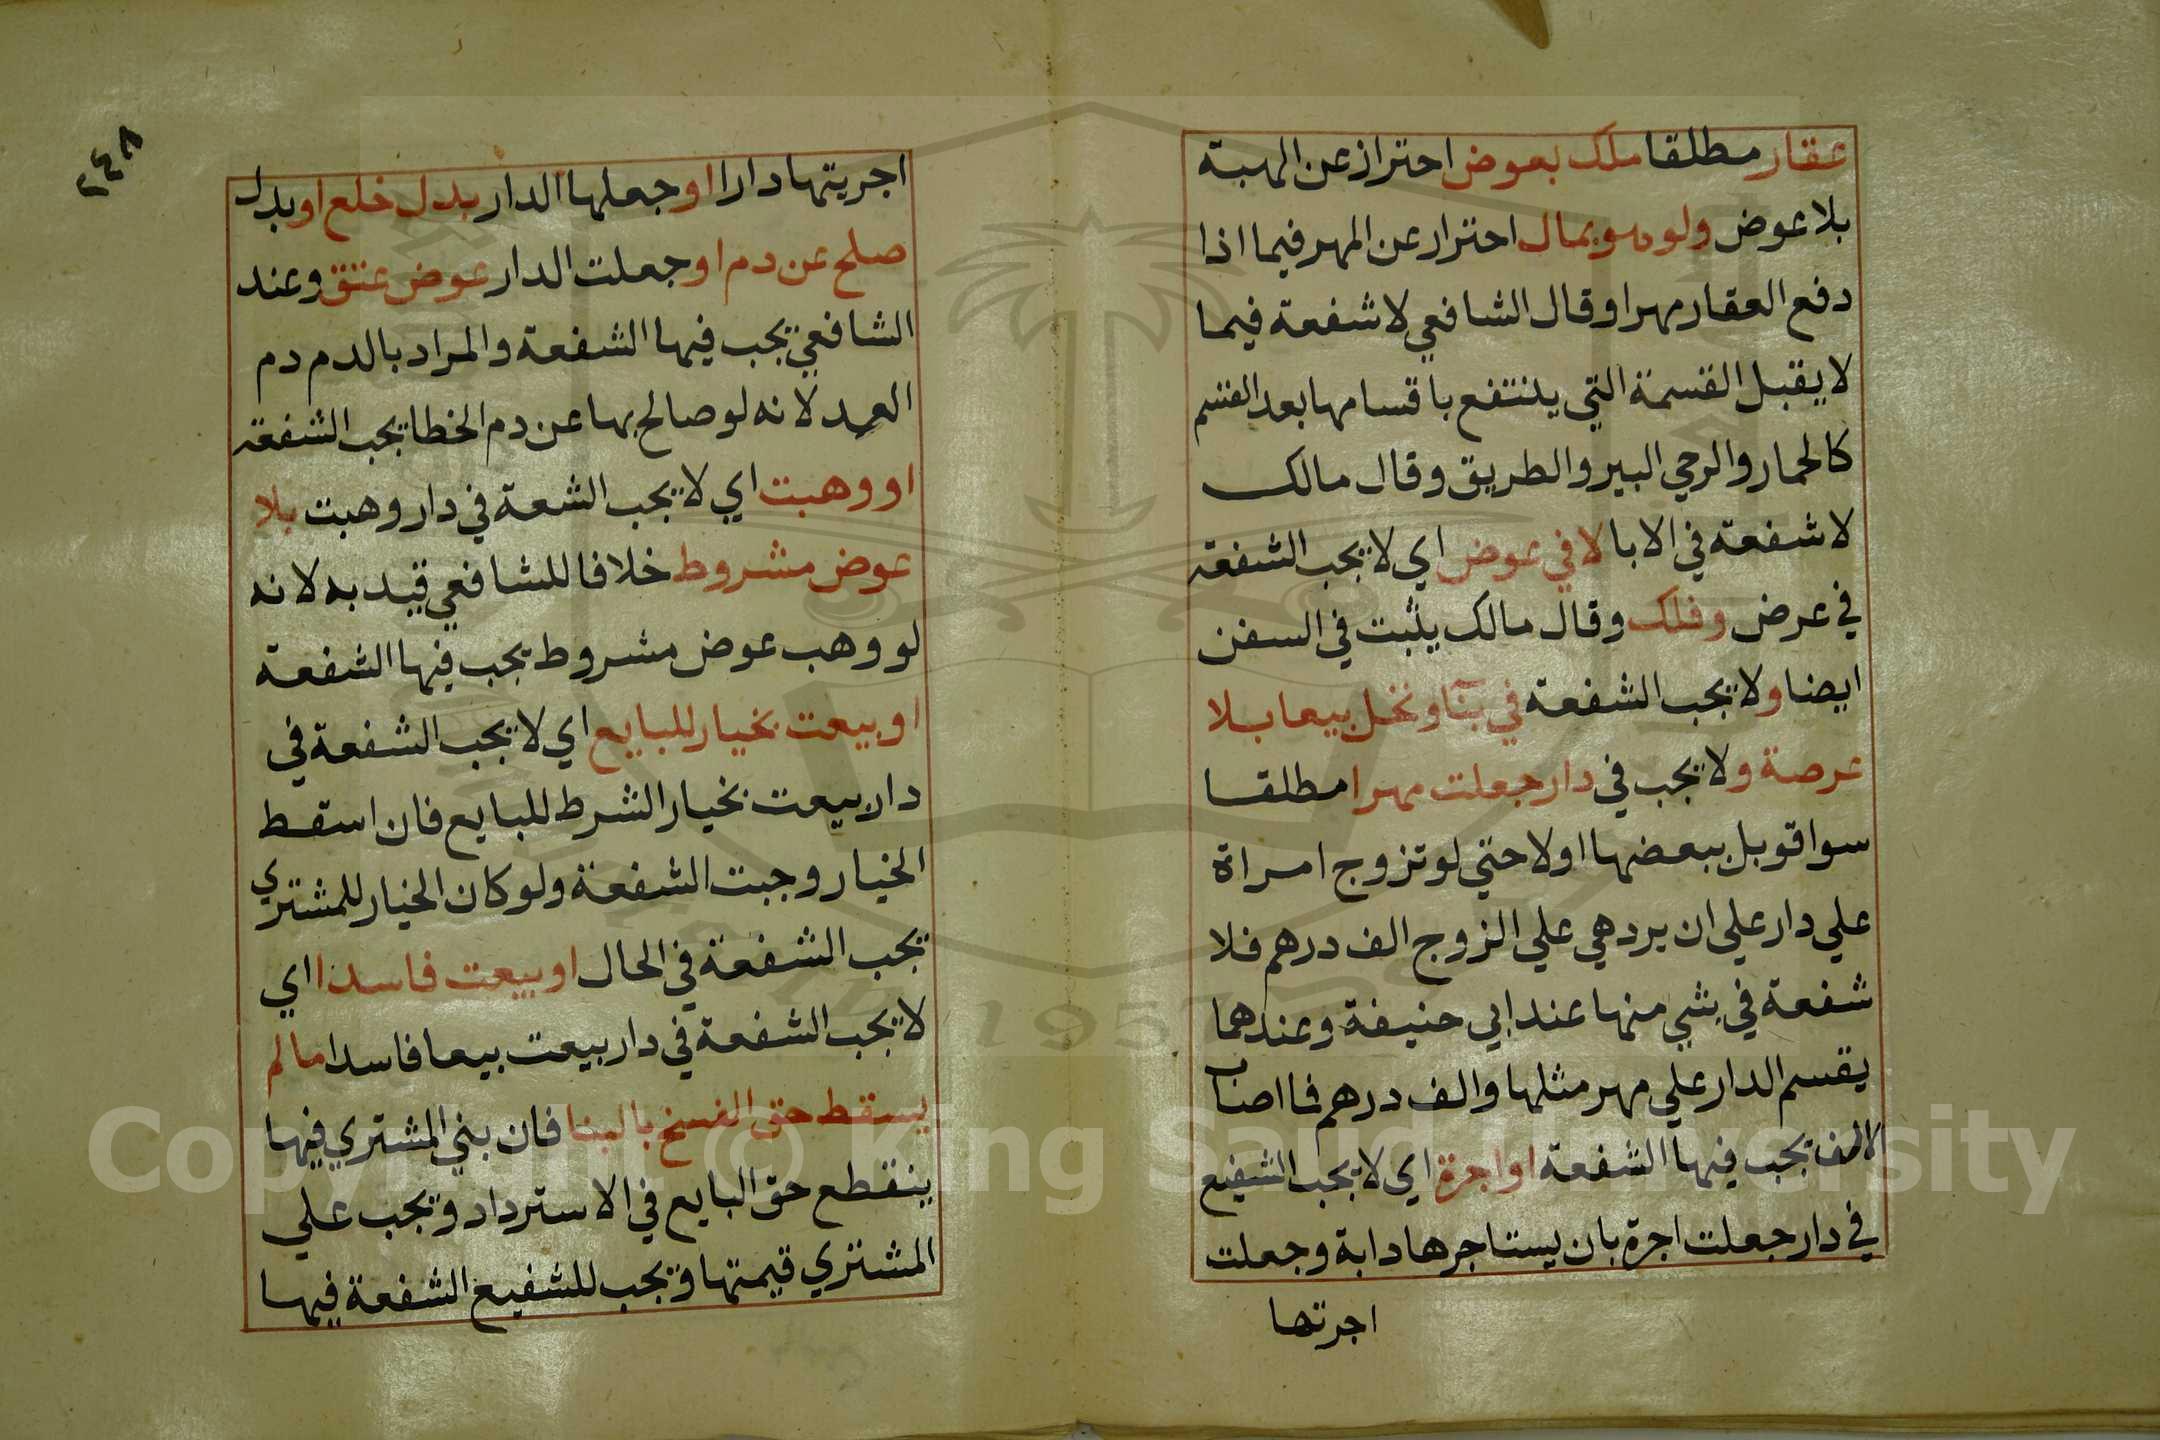 عقار مطلقا ملك بعوض احتراز عن الهبة
بلا عوض ولو هو بمال احتراز عن المهر فيما اذا
دفع العقار مهرا وقال الشافعي لا شفعة فيما
لا يقبل القسمة التي ينتفع باقسامها بعد القسم
كالحمار والرحي البير والطريق وقال مالك
لا شفعة في الابا لا في عوض اي لا يجب الشفعة
في عرض وفلك وقال مالك يثبت في السفن
ايضا ولا يجب الشفعة في بنا ونخل بيعا بلا
عرصة ولا يجب في دار جعلت مهرا مطلقا
سوا قوبل ببعضها اولا حتي لو تزوج امراة
علي دار علي ان يرد هي علي الزوج الف درهم فلا
شفعة في شي منها عند ابي حنيفة وعندهما
يقسم الدار علي مهر مثلها والف درهم فما اصاب
الالف تجب فيها الشفعة او اجرة اي لا يجب الشفيع
في دار جعلت اجرة بان يستاجرها دابة وجعلت
اجرتها
٢٤٨
اجريتها دارا او جعلها الدار بدل خلع او بدل
صلح عن دم او جعلت الدار عوض عتق وعند
الشافعي يجب فيها الشفعة والمراد بالدم دم
العمد لانه لو صالح بها عن دم الخطا يجب الشفعة
او وهبت اي لا يجب الشعة في دار وهبت بلا
عوض مشروط خلافا للشافعي قيد به لانه
لو وهب عوض مشروط يجب فيها الشفعة
او بيعت بخيار للبايع اي لا يجب الشفعة في
دار بيعت بخيار الشرط للبايع فان اسقط
الخيار وجبت الشفعة ولو كان الخيار للمشتري
تجب الشفعة في الحال او بيعت فاسدا اي
لا يجب الشفعة في دار بيعت بيعا فاسدا ما لم
يسقط حق الفسخ بالبنا فان بني المشتري فيها
ينقطع حق البايع في الاسترداد وتجب علي
المشتري قيمتها وتجب للشفيع الشفعة فيها
Copyright © King Saud University
1957